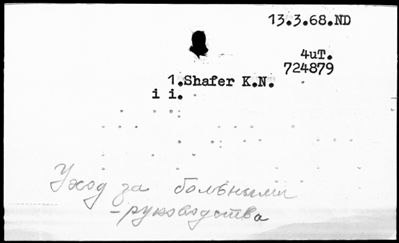 13.3.68.ND
4uT.
724879
1.Shafer K.N.
i i.
Уход за больными
-руководства